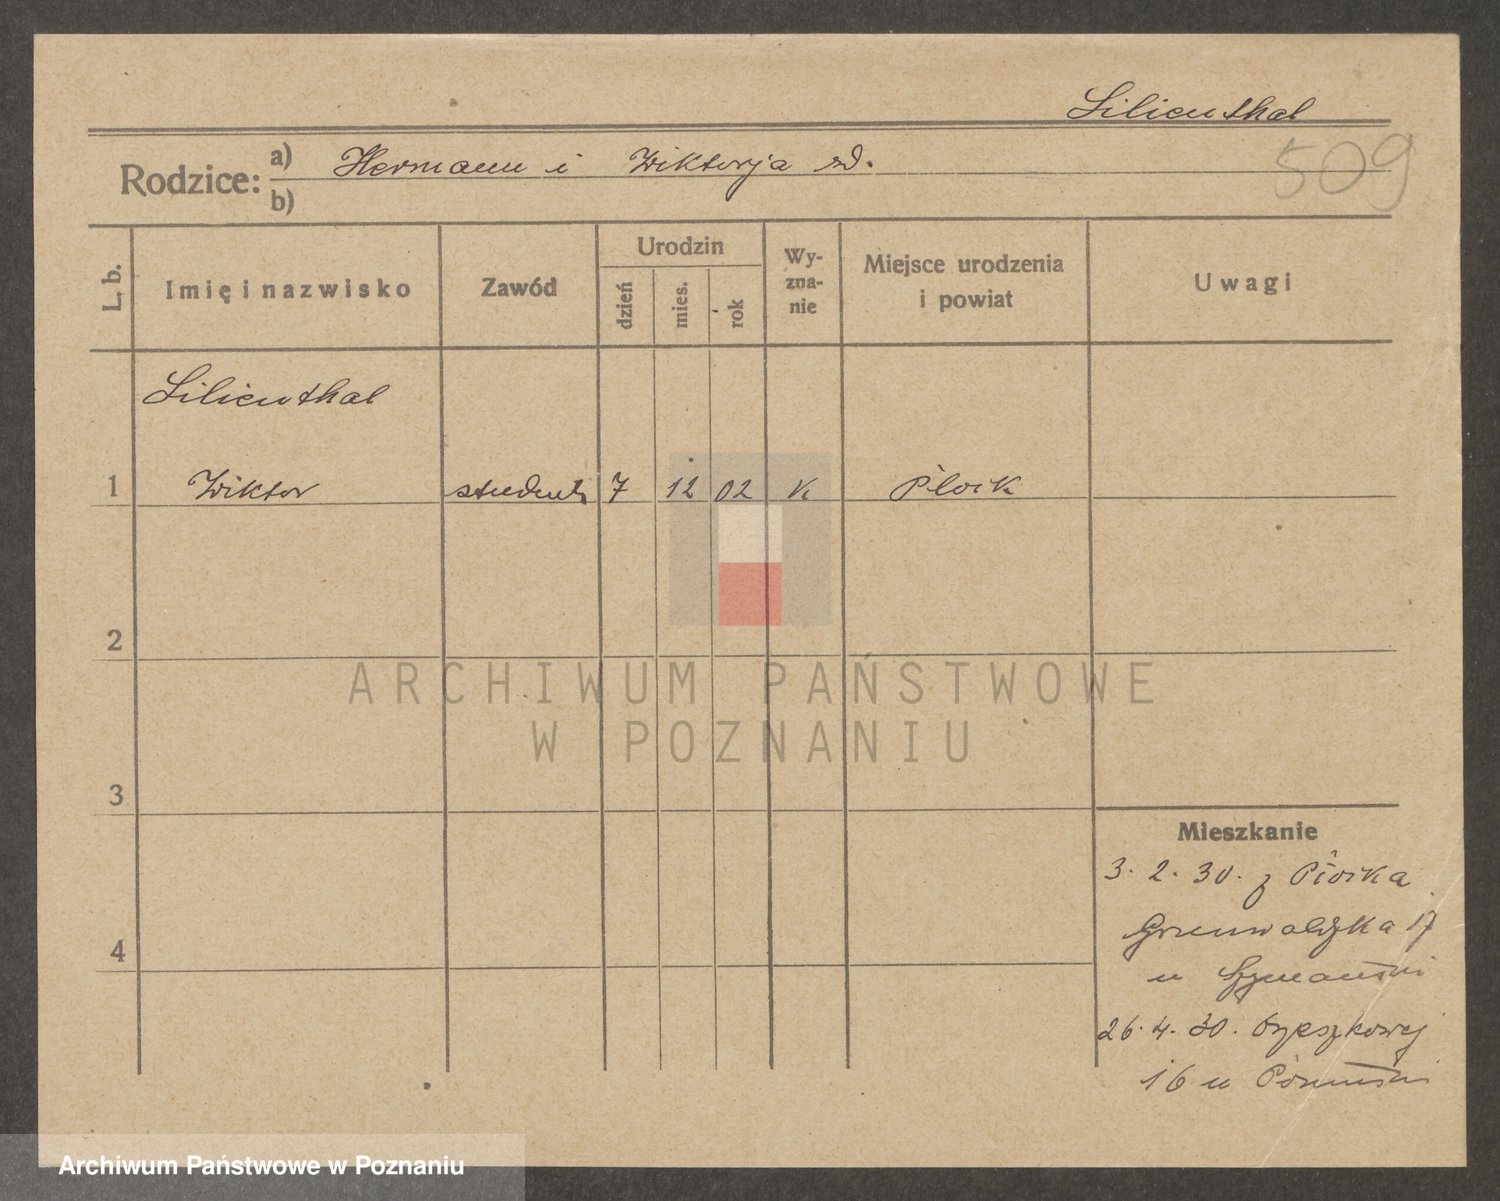 Lilienthal
509
Rodzice: a) Hermann i Wiktorja zd.
b)
L. b.
Imię i nazwisko
Zawód
Urodzin
dzień
mies.
rok
Wy-
zna-
nie
Miejsce urodzenia
i powiat
Uwagi
Lilienthal
1 Wiktor student 7 12 02 k Płock
2
3
4
Mieszkanie
3. 2. 30. z Płocka
Grunwaldzka 17
u Szymański
26. 4. 30. Orzeszkowej
16 u
ARCHIWUM PAŃSTWOWE
W POZNANIU
Archiwum Państwowe w Poznaniu